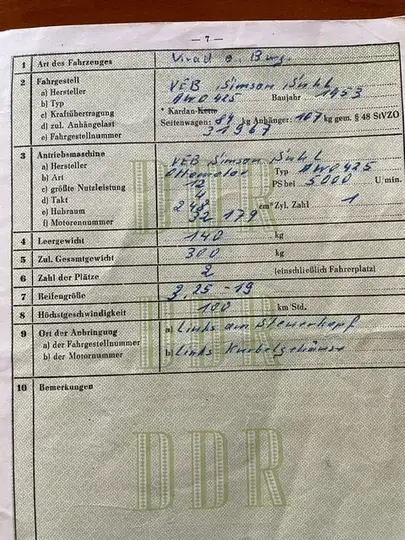 — 7 —
1 Art des Fahrzeuges Krad o. Bwg.
2 Fahrgestell
a) Hersteller VEB Simson Suhl
b) Typ AWO 425 Baujahr 1953
c) Kraftübertragung * Kardan-Kette
d) zul. Anhängelast Seitenwagen: 84 kg Anhänger: 167 kg gem. § 48 StVZO
e) Fahrgestellnummer 31967
3 Antriebsmaschine
a) Hersteller VEB Simson Suhl
b) Art Ottomotor Typ AWO 425
c) größte Nutzleistung 12 PS bei 5000 U/min.
d) Takt 4
e) Hubraum 248 cm³ Zyl. Zahl 1
f) Motorennummer 32 179
4 Leergewicht 140 kg
5 Zul. Gesamtgewicht 300 kg
6 Zahl der Plätze 2 (einschließlich Fahrerplatz)
7 Reifengröße 3,25-19
8 Höchstgeschwindigkeit 100 km Std.
9 Ort der Anbringung a) Links am Steuerkopf
a) der Fahrgestellnummer
b) der Motornummer b) Links Kurbelgehäuse
10 Bemerkungen
DDR
DDR
DDR